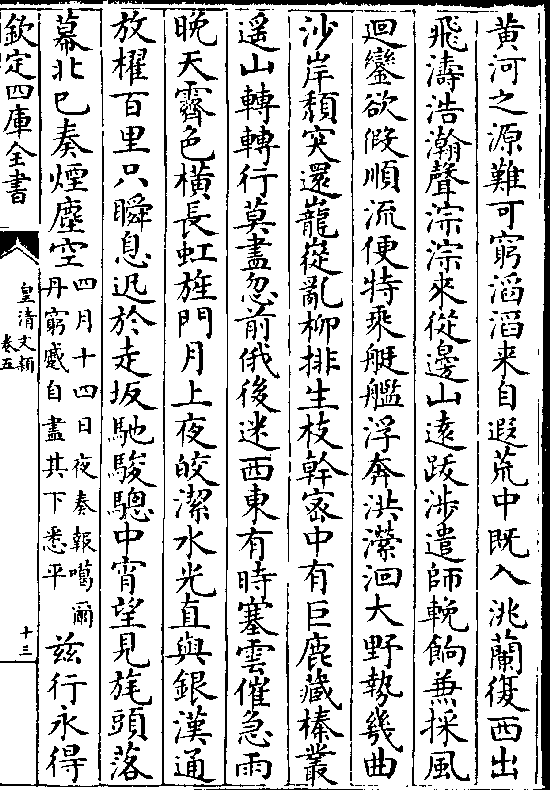 黄河之源難可窮滔滔来自遐荒中既入洮蘭復西出
飛濤浩瀚聲淙淙來從邊山遠跋涉遣師輓餉兼採風
迴鑾欲假順流便特乘艇艦浮奔洪瀠洄大野勢幾曲
沙岸頽突還巃嵸亂柳排生枝幹密中有巨鹿藏榛叢
遥山轉轉行莫盡忽前俄後迷西東有時塞雲催急雨
晩天霽色横長虹旌門月上夜皎潔水光直與銀漢通
放櫂百里只瞬息迅於走坂馳駿驄中宵望見旄頭落
幕北已奏煙塵空四月十四日夜奏報噶爾丹窮蹙自盡其下悉平兹行永得
欽定四庫全書
皇清文穎
卷五
十三